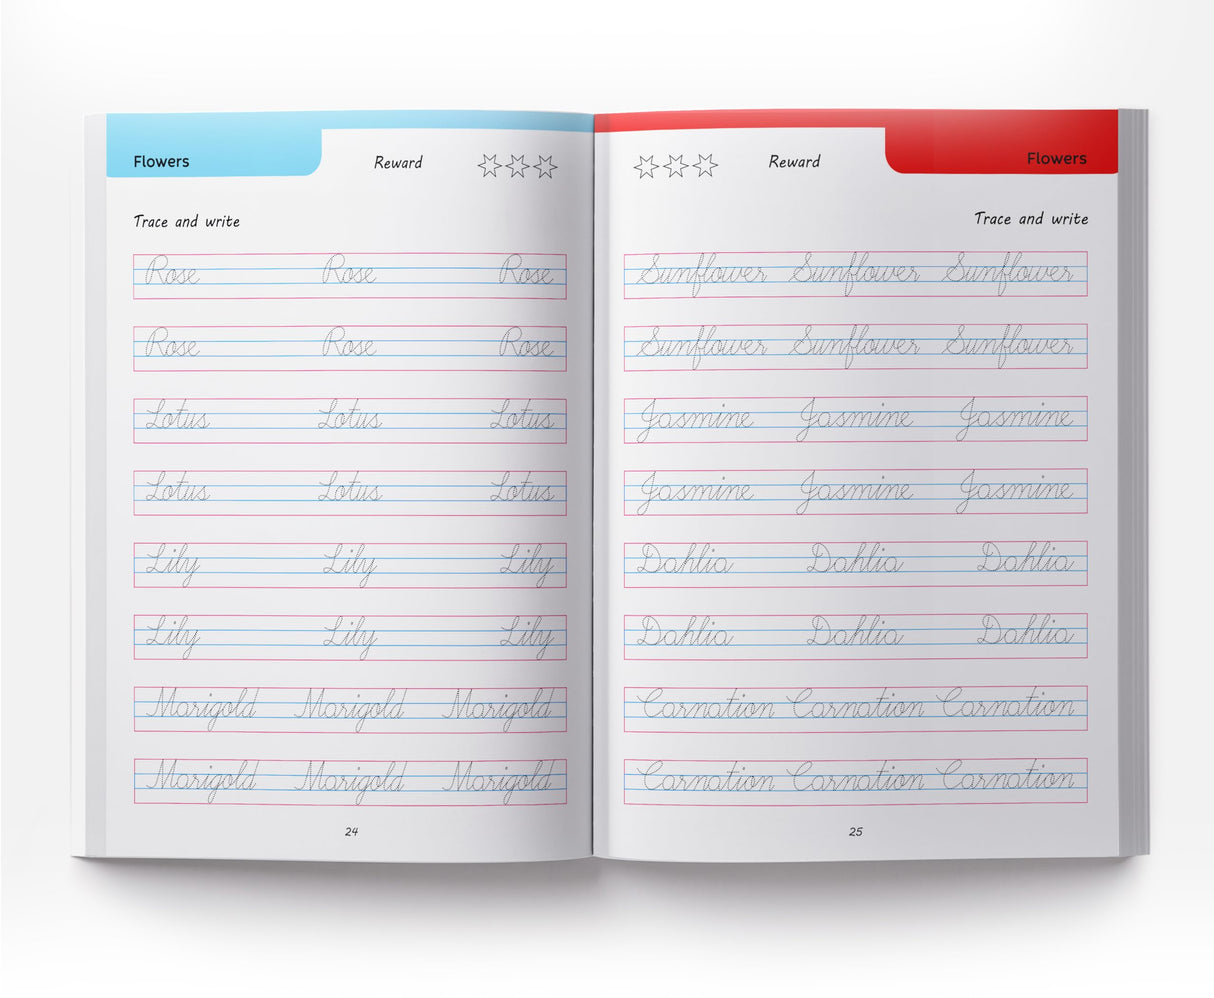 Flowers Reward
Trace and write
Rose Rose Rose
Rose Rose Rose
Lotus Lotus Lotus
Lotus Lotus Lotus
Lily Lily Lily
Lily Lily Lily
Marigold Marigold Marigold
Marigold Marigold Marigold
24
Reward Flowers
Trace and write
Sunflower Sunflower Sunflower
Sunflower Sunflower Sunflower
Jasmine Jasmine Jasmine
Jasmine Jasmine Jasmine
Dahlia Dahlia Dahlia
Dahlia Dahlia Dahlia
Carnation Carnation Carnation
Carnation Carnation Carnation
25